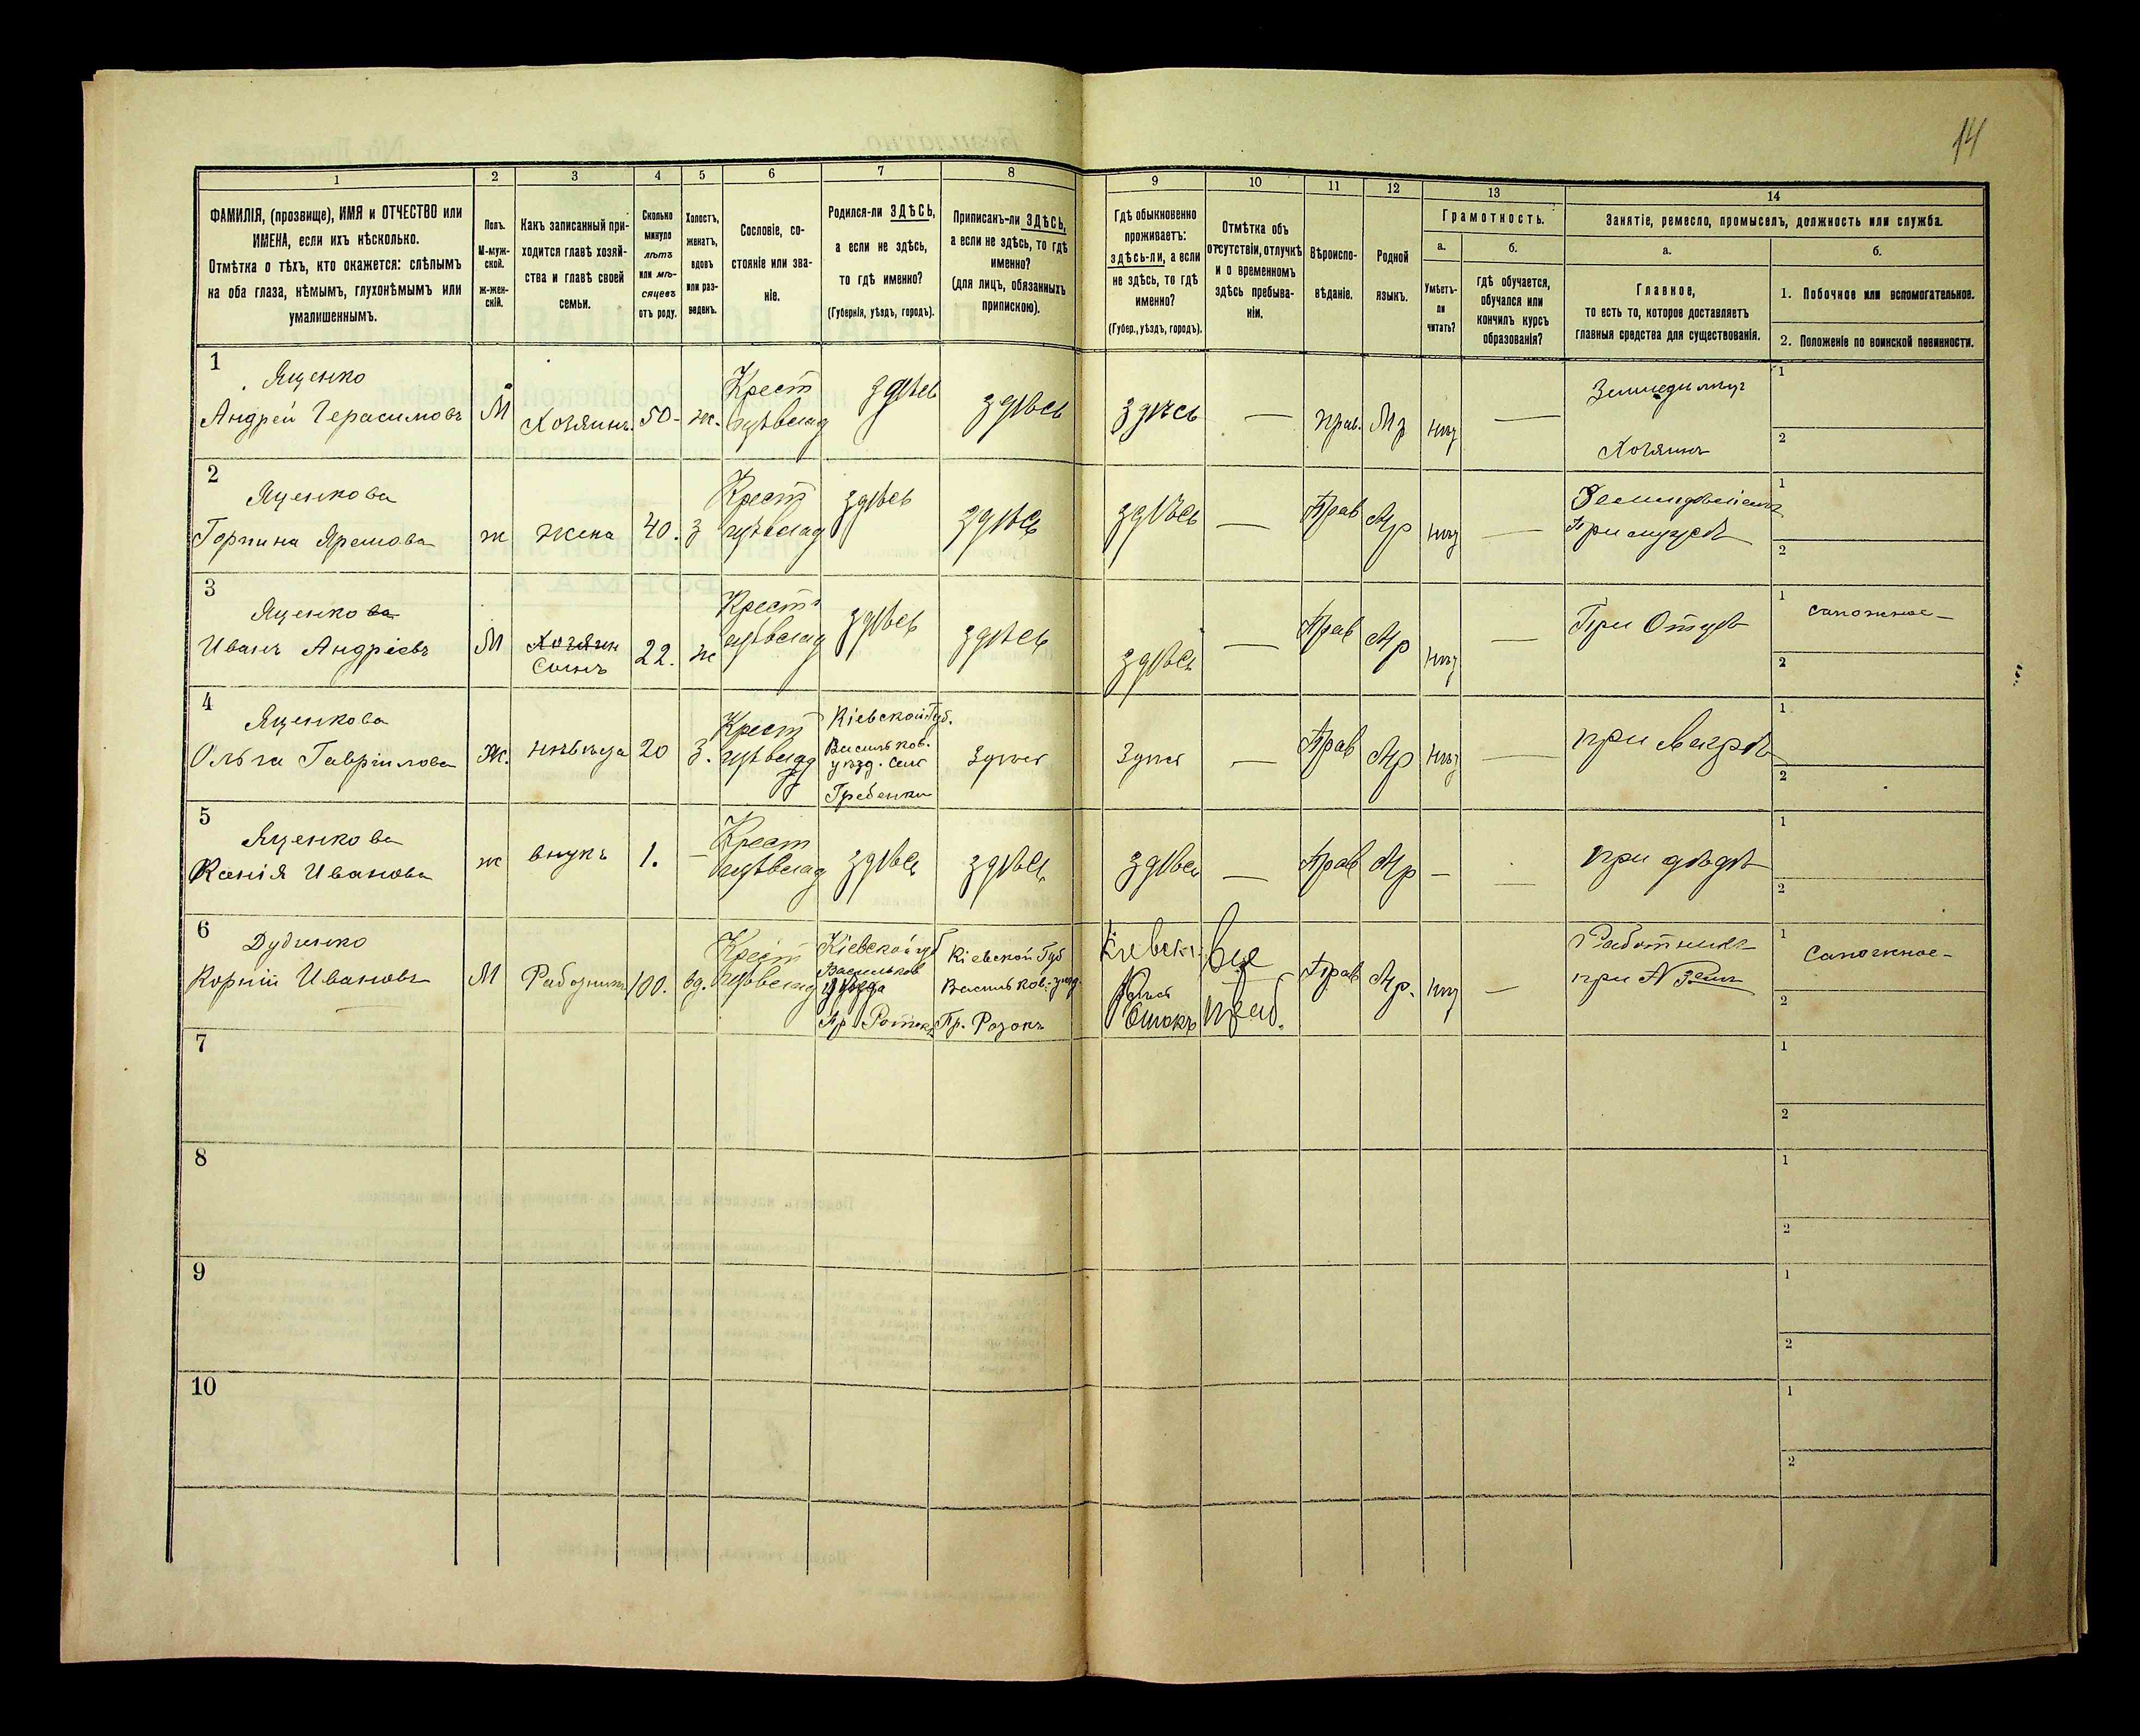 14
1 2 3 4 5 6 7 8 9 10 11 12 13 14
ФАМИЛІЯ, (прозвище), ИМЯ и ОТЧЕСТВО или
ИМЕНА, если ихъ нѣсколько.
Отмѣтка о тѣхъ, кто окажется: слѣпымъ
на оба глаза, нѣмымъ, глухонѣмымъ или
умалишеннымъ.
Полъ.
М-муж-
ской.
ж-жен-
скій.
Какъ записанный при-
ходится главѣ хозяй-
ства и главѣ своей
семьи.
Сколько
минуло
лѣтъ
или мѣ-
сяцевъ
отъ роду.
Холостъ,
женатъ,
вдовъ
или раз-
веденъ.
Сословіе, со-
стояніе или зва-
ніе.
Родился-ли ЗДѢСЬ,
а если не здѣсь,
то гдѣ именно?
(Губернія, уѣздъ, городъ).
Приписанъ-ли ЗДѢСЬ,
а если не здѣсь, то гдѣ
именно?
(для лицъ, обязанныхъ
припискою).
Гдѣ обыкновенно
проживаетъ:
здѣсь-ли, а если
не здѣсь, то гдѣ
именно?
(Губер., уѣздъ, городъ).
Отмѣтка объ
отсутствіи, отлучкѣ
и о временномъ
здѣсь пребыва-
ніи.
Вѣроиспо-
вѣданіе.
Родной
языкъ.
Грамотность.
а.
Умѣетъ-
ли
читать?
б.
Гдѣ обучается,
обучался или
кончилъ курсъ
образованія?
Занятіе, ремесло, промыселъ, должность или служба.
а.
Главное,
то есть то, которое доставляетъ
главныя средства для существованія.
б.
1. Побочное или вспомогательное.
2. Положеніе по воинской повинности.
1 Яценко
Андрей Герасимовъ М Хозяинъ 50 ж. Крест здѣсь здѣсь здѣсь — прав. Мр —
Хозяинъ
1
2
2 Яценкова
Горпина Яремова ж жена 40. З Крест здѣсь здѣсь здѣсь — Прав Мр —
При мужѣ
1
2
3 Яценкова
Иванъ Андріевъ М Хозяин Сынъ 22. ж Крест здѣсь здѣсь здѣсь — Прав Мр — При Отцѣ
1 сапожное
2
4 Яценкова
Ольга Гавріилова Ж. 20 З. Крест
Кіевской Губ.
Васильков.
уѣзд. село
Гребенки
здѣсь здѣсь — Прав Мр — при Свекрѣ
1
2
5 Яценкова
Ксенія Иванова ж внукъ 1. — Крест здѣсь здѣсь здѣсь — Прав Мр — — при дѣдѣ
1
2
6 Дудченко
Корній Ивановъ М Работникъ вд. Крест
Кіевской губ
Васильков
уѣзда
Кіевской Губ
Васильков. уезд
Прав Мр. —
Работникъ
1 Сапожное
2
7
1
2
8
1
2
9
1
2
10
1
2